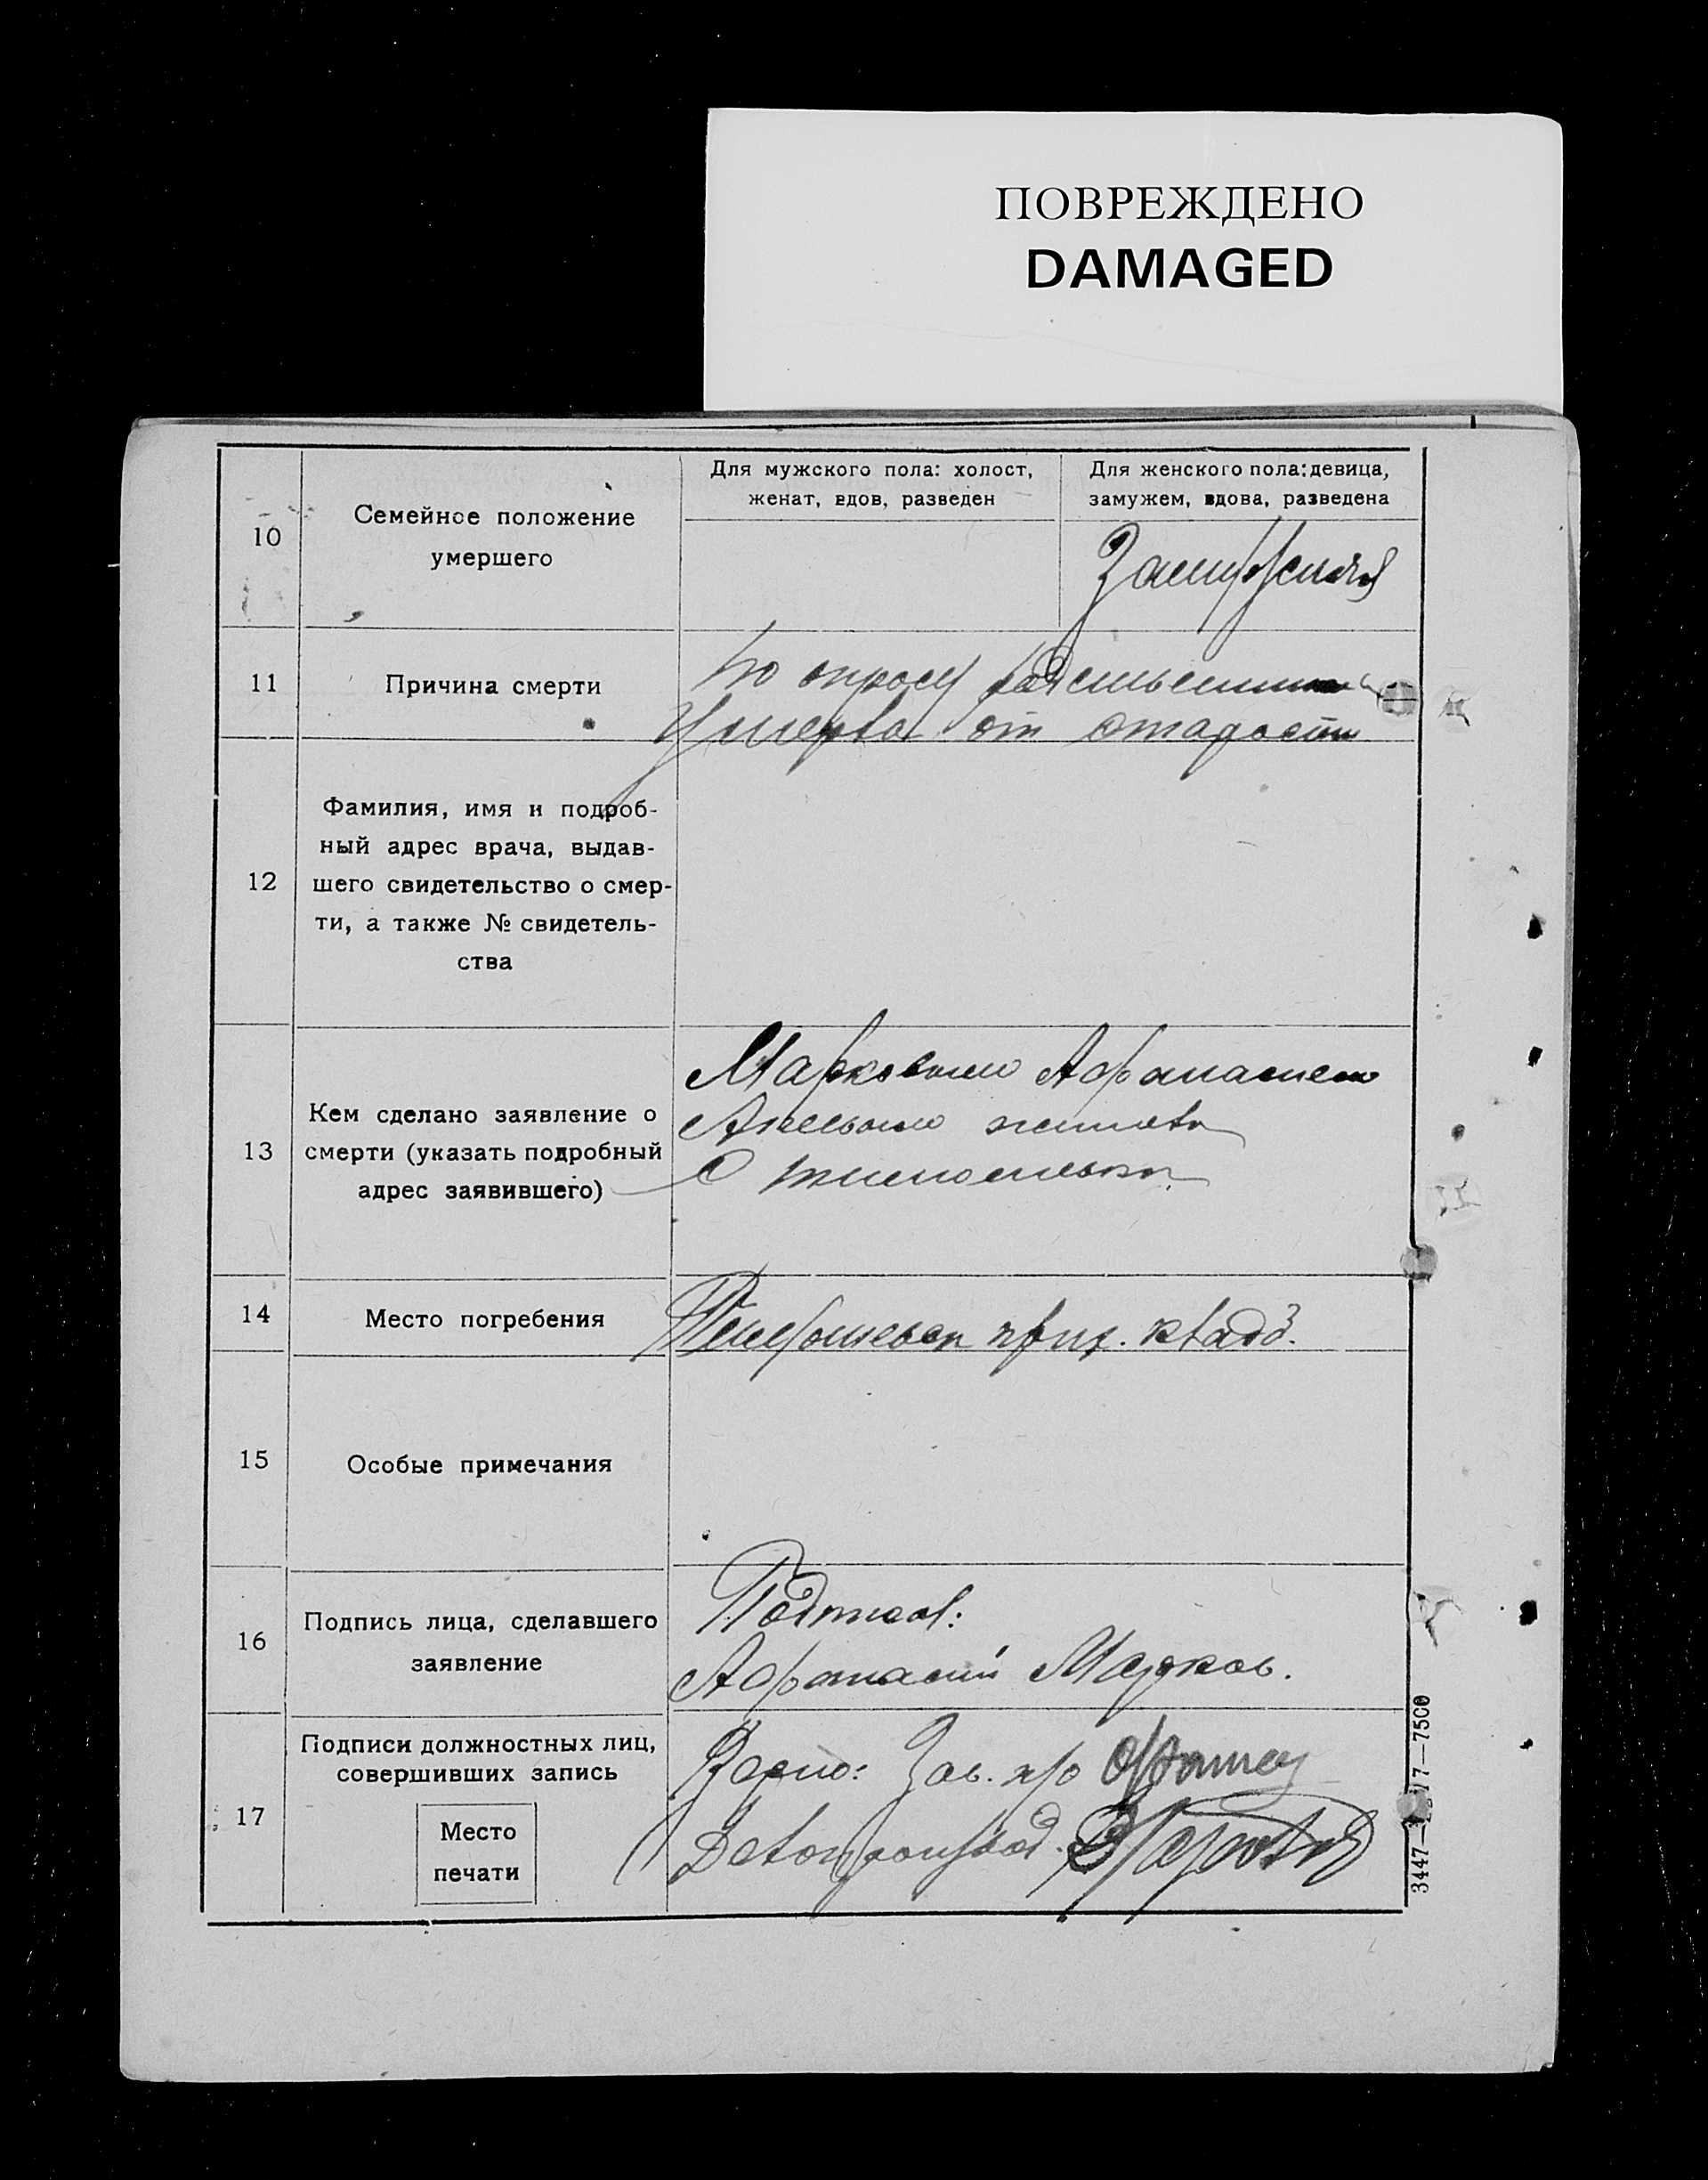 ПОВРЕЖДЕНО
DAMAGED
10
Семейное положение
умершего
Для мужского пола: холост,
женат, вдов, разведен
Для женского пола: девица,
замужем, вдова, разведена
Замужняя
11
Причина смерти
По опросу родственников
Умерла от старости
12
Фамилия, имя и подроб-
ный адрес врача, выдав-
шего свидетельство о смер-
ти, а также № свидетель-
ства
13
Кем сделано заявление о
смерти (указать подробный
адрес заявившего)
Марковым Афанасием
14
Место погребения
прих. кладб.
15
Особые примечания
16
Подпись лица, сделавшего
заявление
Подписал:
Афанасий Марков.
17
Подписи должностных лиц,
совершивших запись
Место
печати
Верно: Зав. п/о
Делопроизвод.